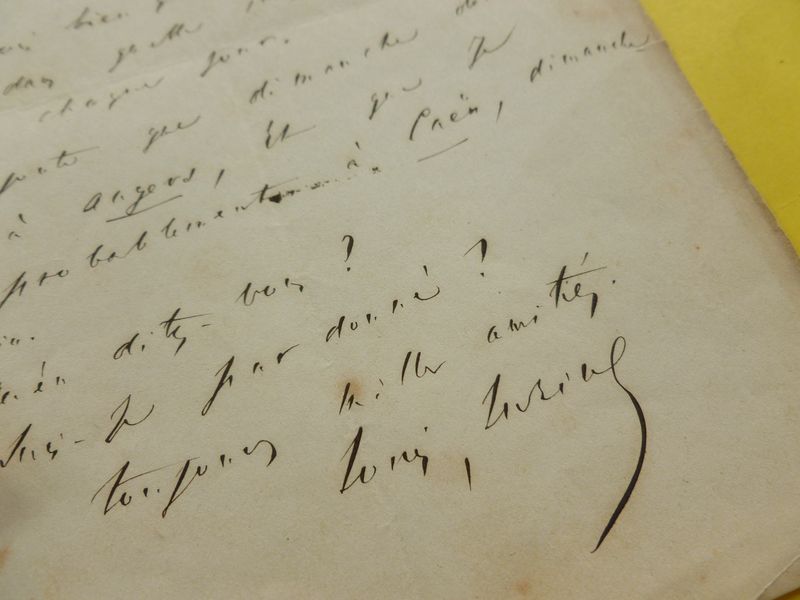 bien
dans quelle
chaque jour.
que dimanche
à Angers, Et que je
probablement à Caën, dimanche
ditez-vous ?
Suis-je pardonné ?
mille amitiés.
toujours
Louis, Lurine